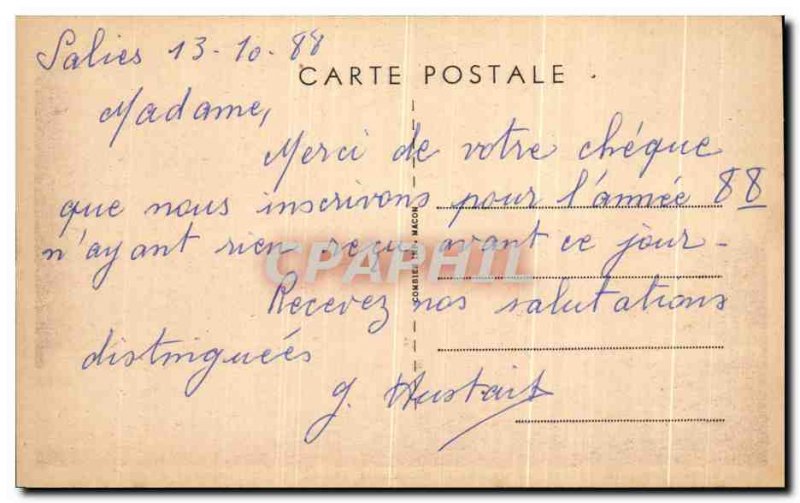 Salies 13-10-88
CARTE POSTALE
Madame,
Merci de votre chéque
que nous inscrivons pour l'année 88
n'ayant rien reçu avant ce jour -
Recevez nos salutations
distinguées
g.
COMBIER IMP. MACON
CPAPHIL